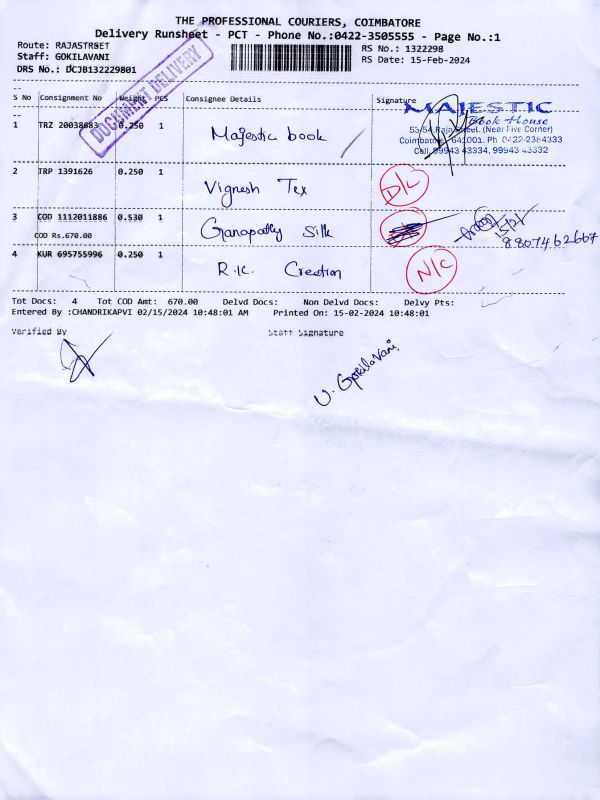 THE PROFESSIONAL COURIERS, COIMBATORE
Delivery Runsheet - PCT - Phone No.:0422-3505555 - Page No.:1
Route: RAJASTREET
Staff: GOKILAVANI
DRS No.: DCJB132229801
RS No.: 1322298
RS Date: 15-Feb-2024
DOCUMENT DELIVERY
S No Consignment No Weight PCS Consignee Details Signature
1 TRZ 0.250 1 Majestic book
MAJESTIC
Book House
53/54, Raja Street, (Near Five Corner)
Coimbatore 641001. Ph 0422-2384333
Cell 99943 43334, 99943 43332
2 TRP 1391626 0.250 1 Vignesh Tex D/L
3 COD 1112011886 0.530 1 Ganapathy Silk 15/2/
COD Rs.670.00 8807462667
4 KUR 695755996 0.250 1 R.K. Creation N/C
Tot Docs: 4 Tot COD Amt: 670.00 Delvd Docs: Non Delvd Docs: Delvy Pts:
Entered By :CHANDRIKAPVI 02/15/2024 10:48:01 AM Printed On: 15-02-2024 10:48:01
Verified By Staff Signature
U. Gokilavani